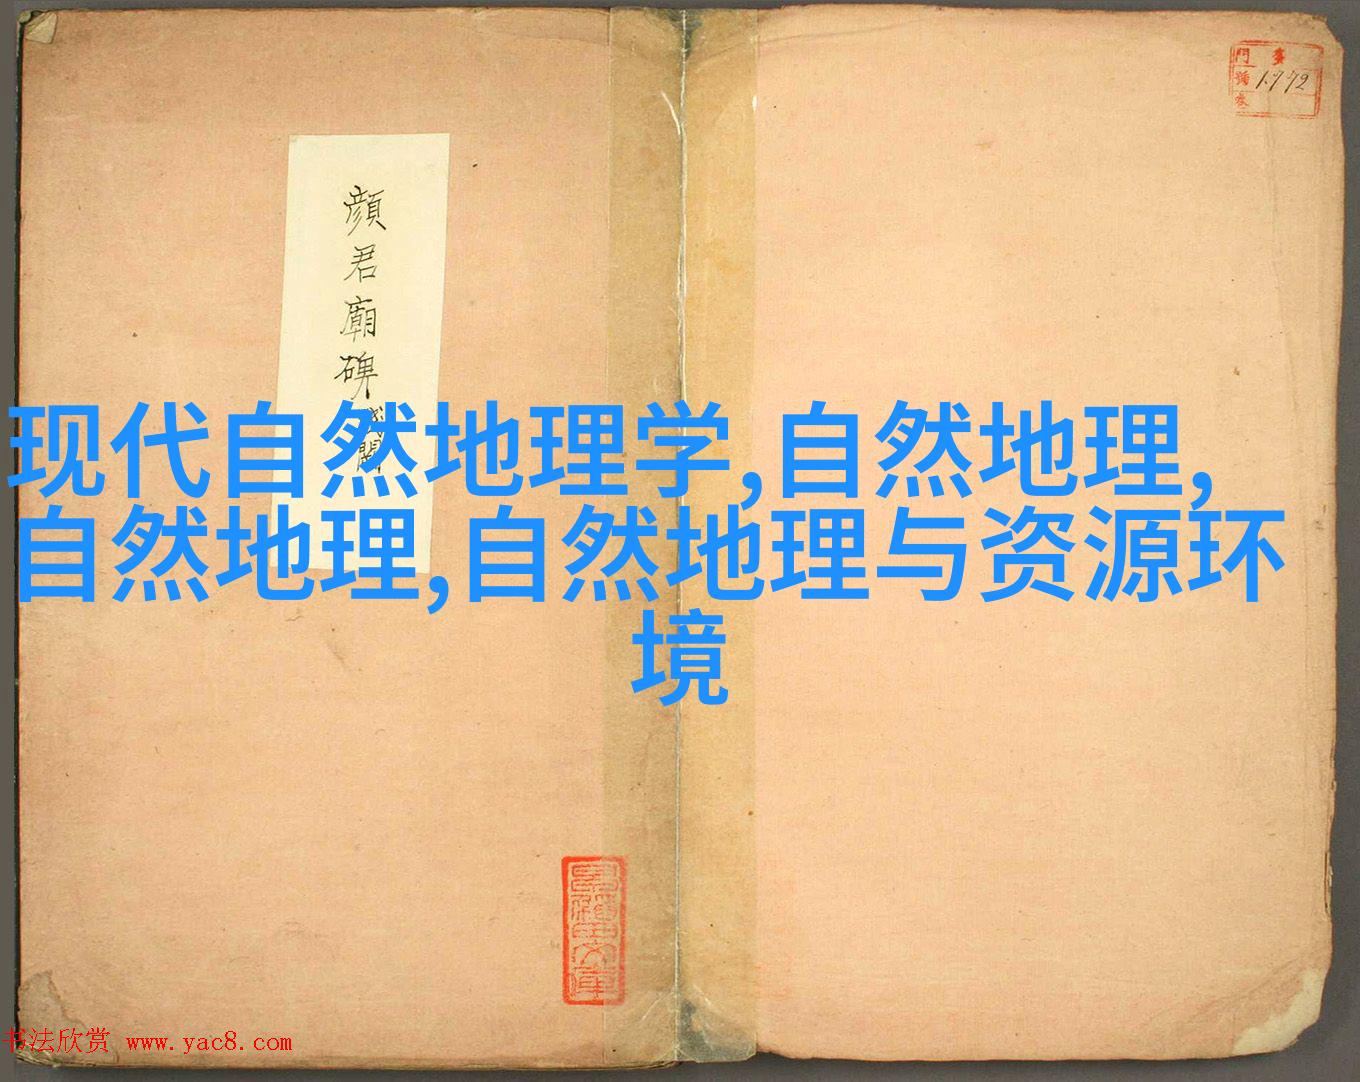 現代自然地理学,自然地理,
自然地理,自然地理与资源环
境
顔君廟碑
門
號 1772
書法欣赏 www.yac8.com